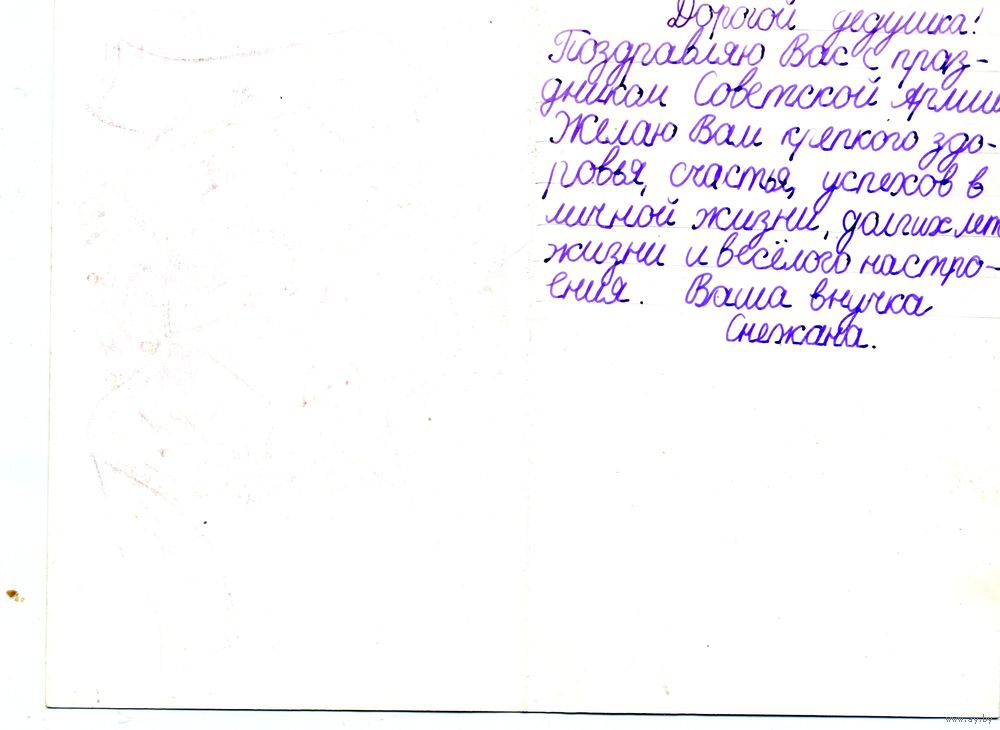 Дорогой дедушка!
Поздравляю Вас с праз-
дником Советской Армии
Желаю Вам крепкого здо-
ровья, счастья, успехов в
личной жизни, долгих лет
жизни и весёлого настро-
ения. Ваша внучка
Снежана.
www.ay.by